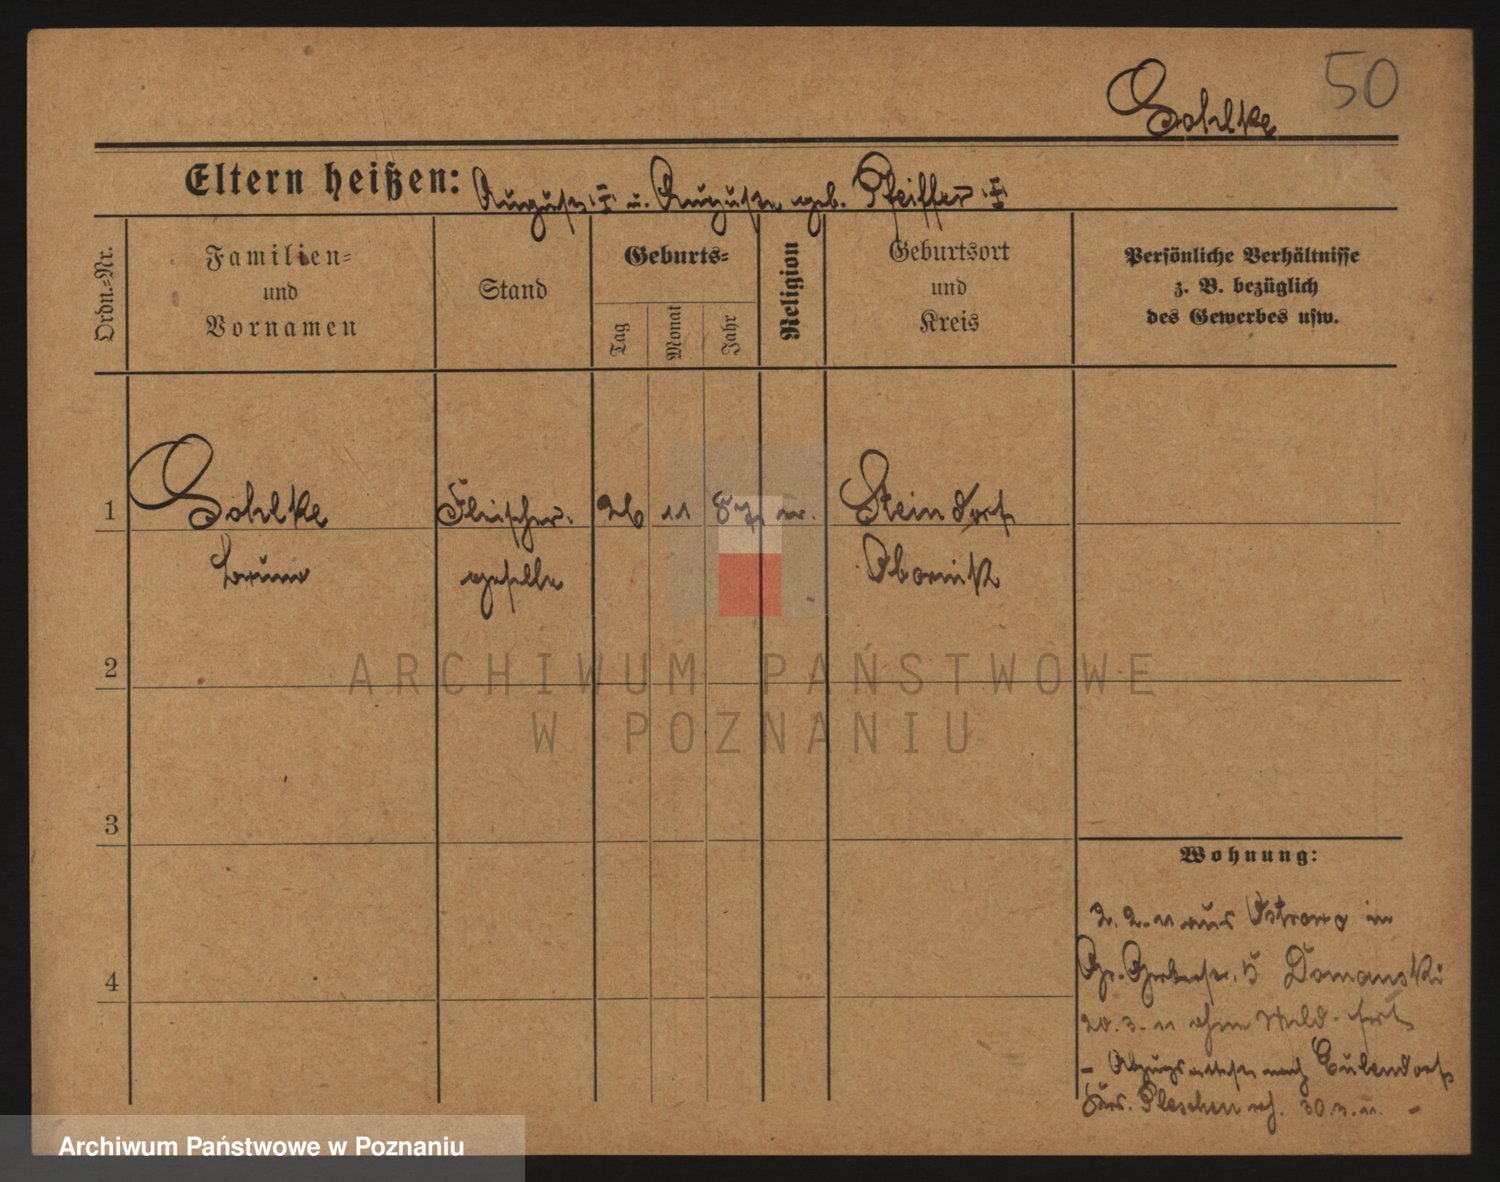 50
Eltern heißen: August u. Auguste geb. Pfeiffer
Ordn.-Nr.
Familien-
und
Vornamen
Stand
Geburts-
Tag
Monat
Jahr
Religion
Geburtsort
und
Kreis
Persönliche Verhältnisse
z. B. bezüglich
des Gewerbes usw.
1
Fleischer-
26
11
ev.
Steindorf
Bruno
geselle
Obornik
2
ARCHIWUM PAŃSTWOWE
W POZNANIU
3
Wohnung:
2. 2. 11 aus Ostrowo in
4
Gr. Gerberstr. 5 Domanski
20. 3. 11 ohne Meld. fort
- Abzugsattest nach Eulendorf
Krs. Pleschen 30. 3. 11. -
Archiwum Państwowe w Poznaniu